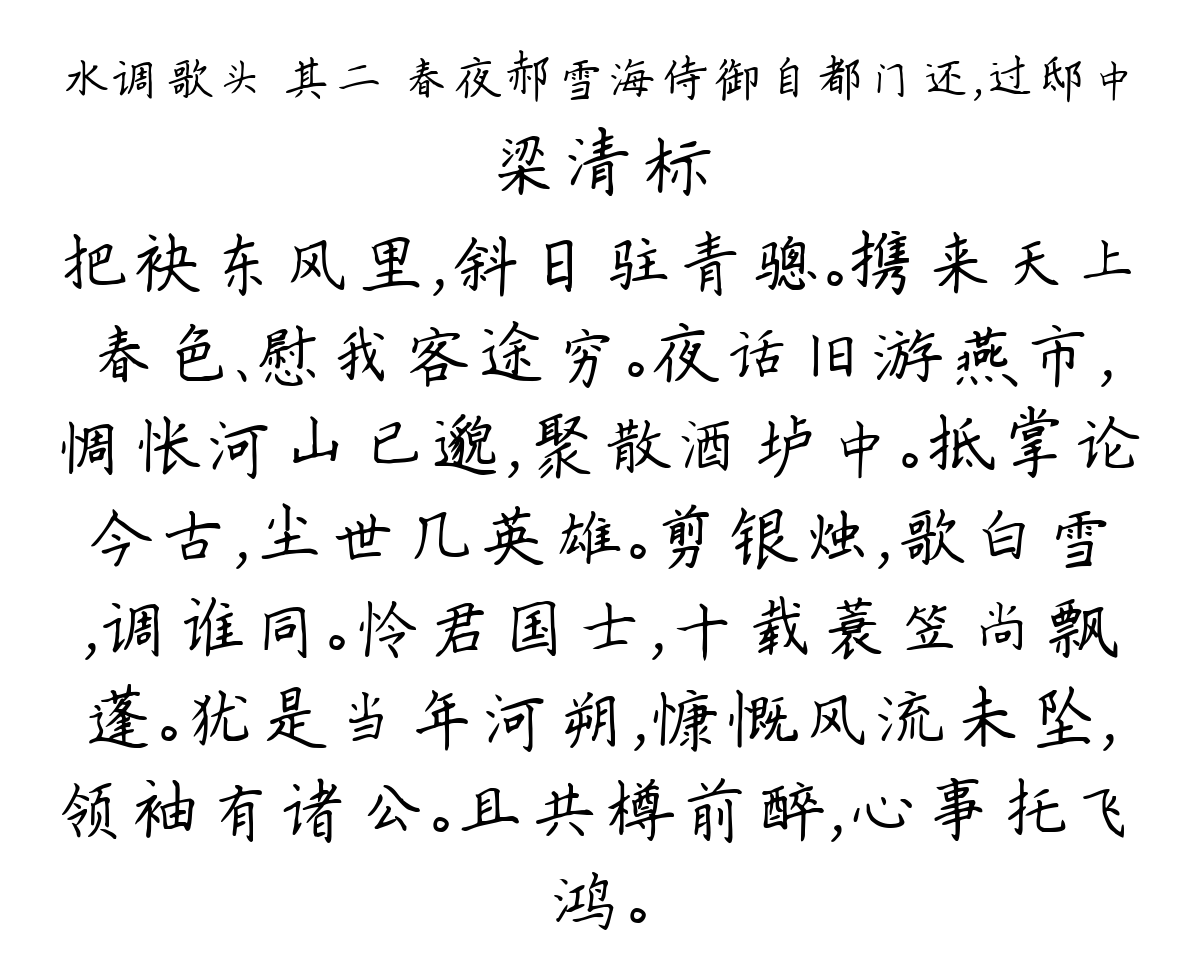 水调歌头 其二 春夜郝雪海侍御自都门还,过邸中
梁清标
把袂东风里,斜日驻青骢。携来天上
春色、慰我客途穷。夜话旧游燕市,
惆怅河山已邈,聚散酒垆中。抵掌论
今古,尘世几英雄。剪银烛,歌白雪
,调谁同。怜君国士,十载蓑笠尚飘
蓬。犹是当年河朔,慷慨风流未坠,
领袖有诸公。且共樽前醉,心事托飞
鸿。